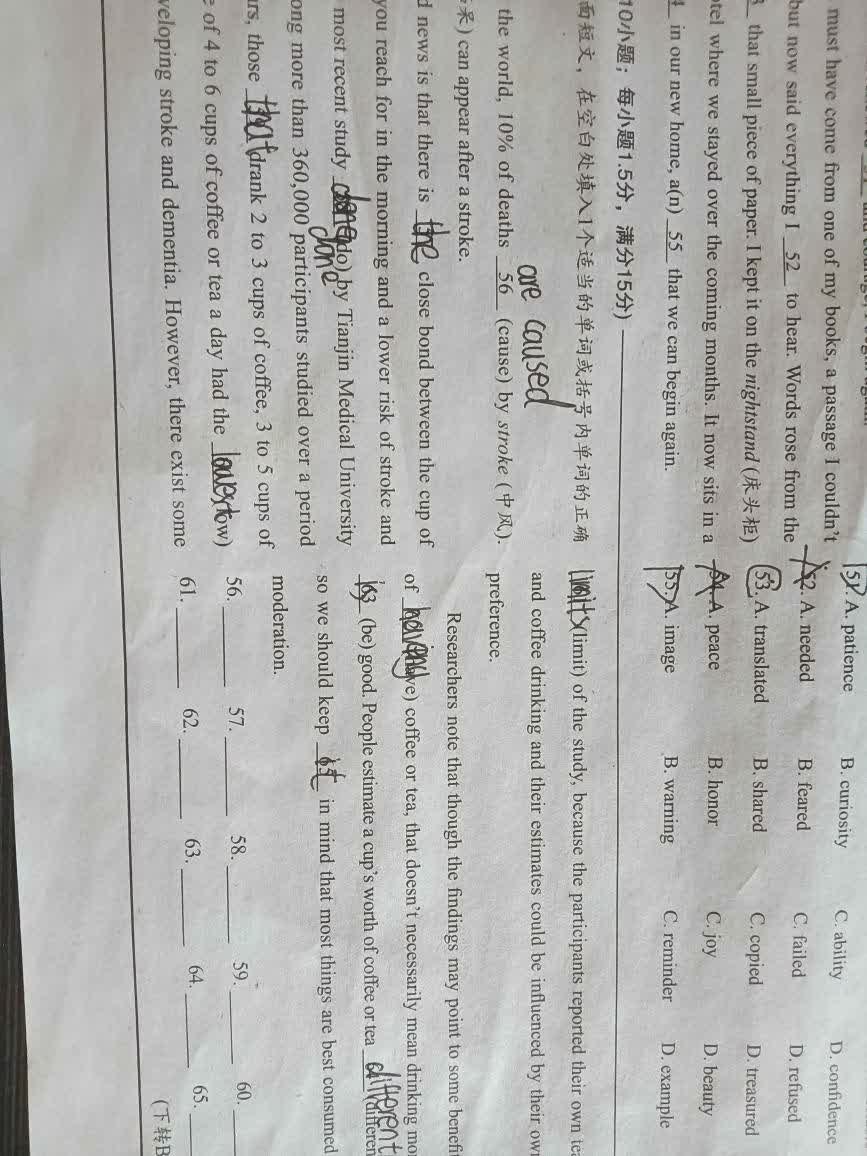 must have come from one of my books, a passage I couldn't
but now said everything I 52 to hear. Words rose from the
that small piece of paper. I kept it on the nightstand (床头柜)
where we stayed over the coming months. It now sits in a
in our new home, a(n) 55 that we can begin again.
51. A. patience B. curiosity C. ability D. confidence
52. A. needed B. feared C. failed D. refused
53. A. translated B. shared C. copied D. treasured
54. A. peace B. honor C. joy D. beauty
55. A. image B. warning C. reminder D. example
10小题；每小题1.5分，满分15分)
面短文，在空白处填入1个适当的单词或括号内单词的正确
are caused
the world, 10% of deaths 56 (cause) by stroke (中风).
can appear after a stroke.
news is that there is the close bond between the cup of
you reach for in the morning and a lower risk of stroke and
most recent study done (do) by Tianjin Medical University
done
more than 360,000 participants studied over a period
those that drank 2 to 3 cups of coffee, 3 to 5 cups of
of 4 to 6 cups of coffee or tea a day had the lowest
stroke and dementia. However, there exist some
limits (limit) of the study, because the participants reported their own
and coffee drinking and their estimates could be influenced by their
preference.
Researchers note that though the findings may point to some
of having coffee or tea, that doesn't necessarily mean drinking
63 (be) good. People estimate a cup's worth of coffee or tea different
so we should keep it in mind that most things are best consumed
moderation.
56. 57. 58. 59. 60.
61. 62. 63. 64. 65.
(下转B